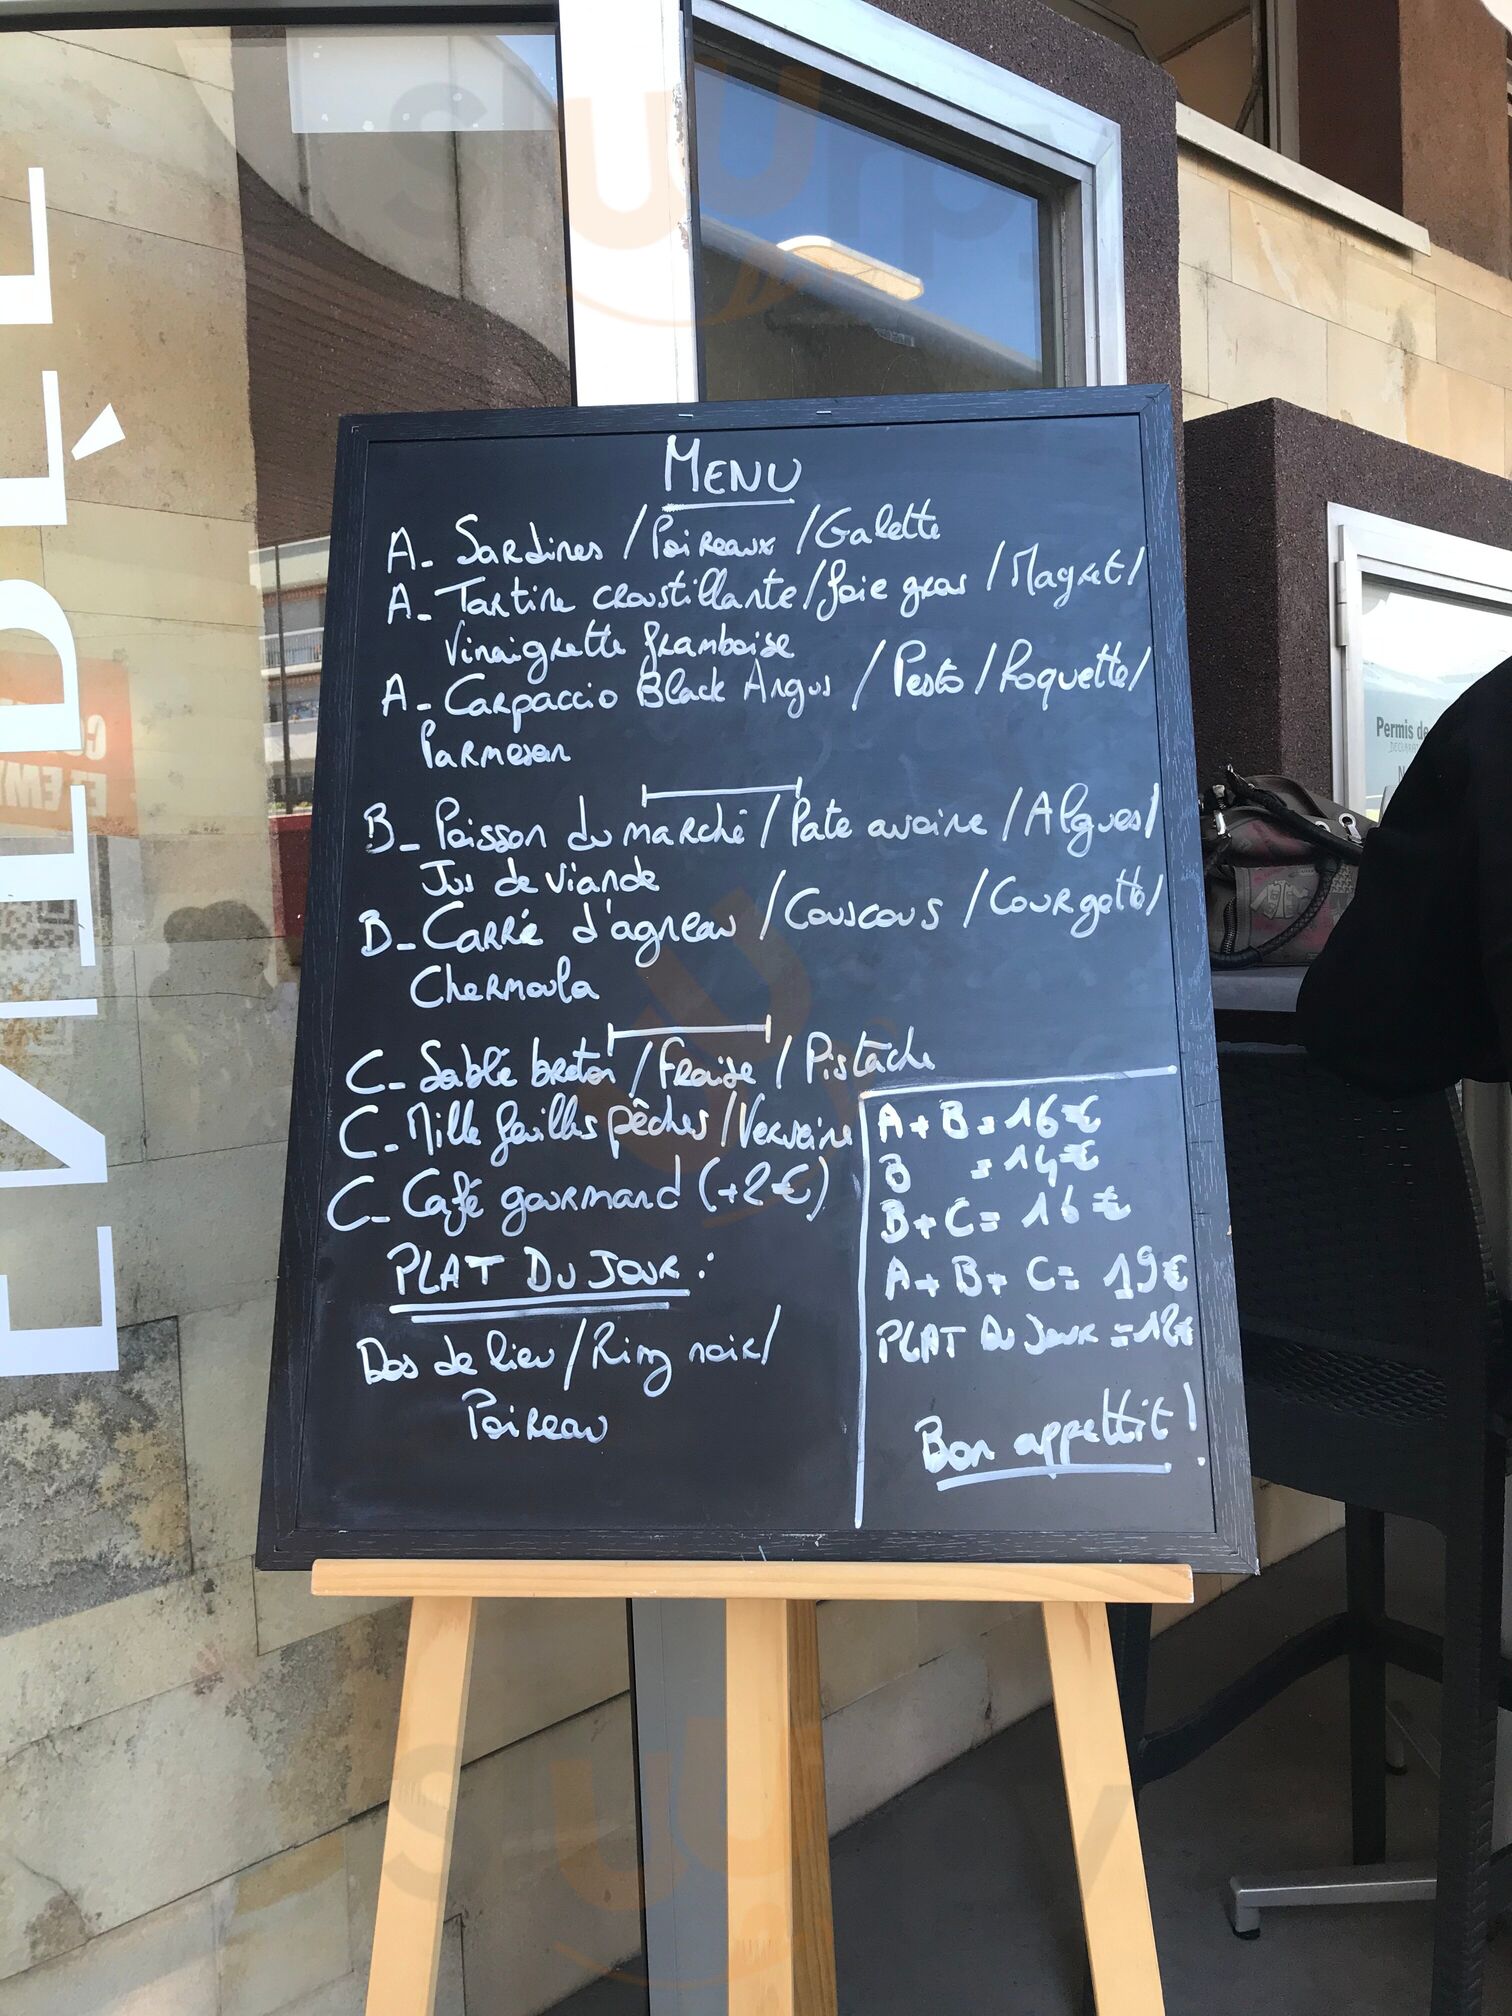 MENU
A- Sardines / Poireaux / Galette
A- Tartine croustillante / foie gras / Magret /
Vinaigrette framboise
A- Carpaccio Black Angus / Pesto / Roquette /
Parmesan
B- Poisson du marché / Pate avoine / Algues /
Jus de viande
B- Carré d'agneau / Couscous / Courgette /
Chermoula
C- Sablé breton / Fraise / Pistache
C- Mille feuilles pêches / Verveine
C- Café gourmand (+2€)
PLAT DU JOUR :
Dos de lieu / Riz noir /
Poireau
A + B = 16€
B = 14€
B + C = 16€
A + B + C = 19€
PLAT DU JOUR = 12€
Bon appettit !
Permis de